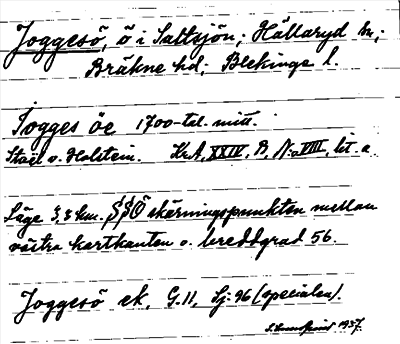 Joggesö, ö i Saltsjön; Hällaryd sn;
Bräkne hd; Blekinge l.
Jogges öe 1700-tal. mitt.
Staël v. Holstein. Kr.A, XXIV, B, N:o VIII, lit. a.
Läge 3,8 km. SSÖ skärningspunkten mellan
västra kartkanten o. breddgrad 56.
Joggesö ek. G. 11, Sj. 96 (specialen).
1937.